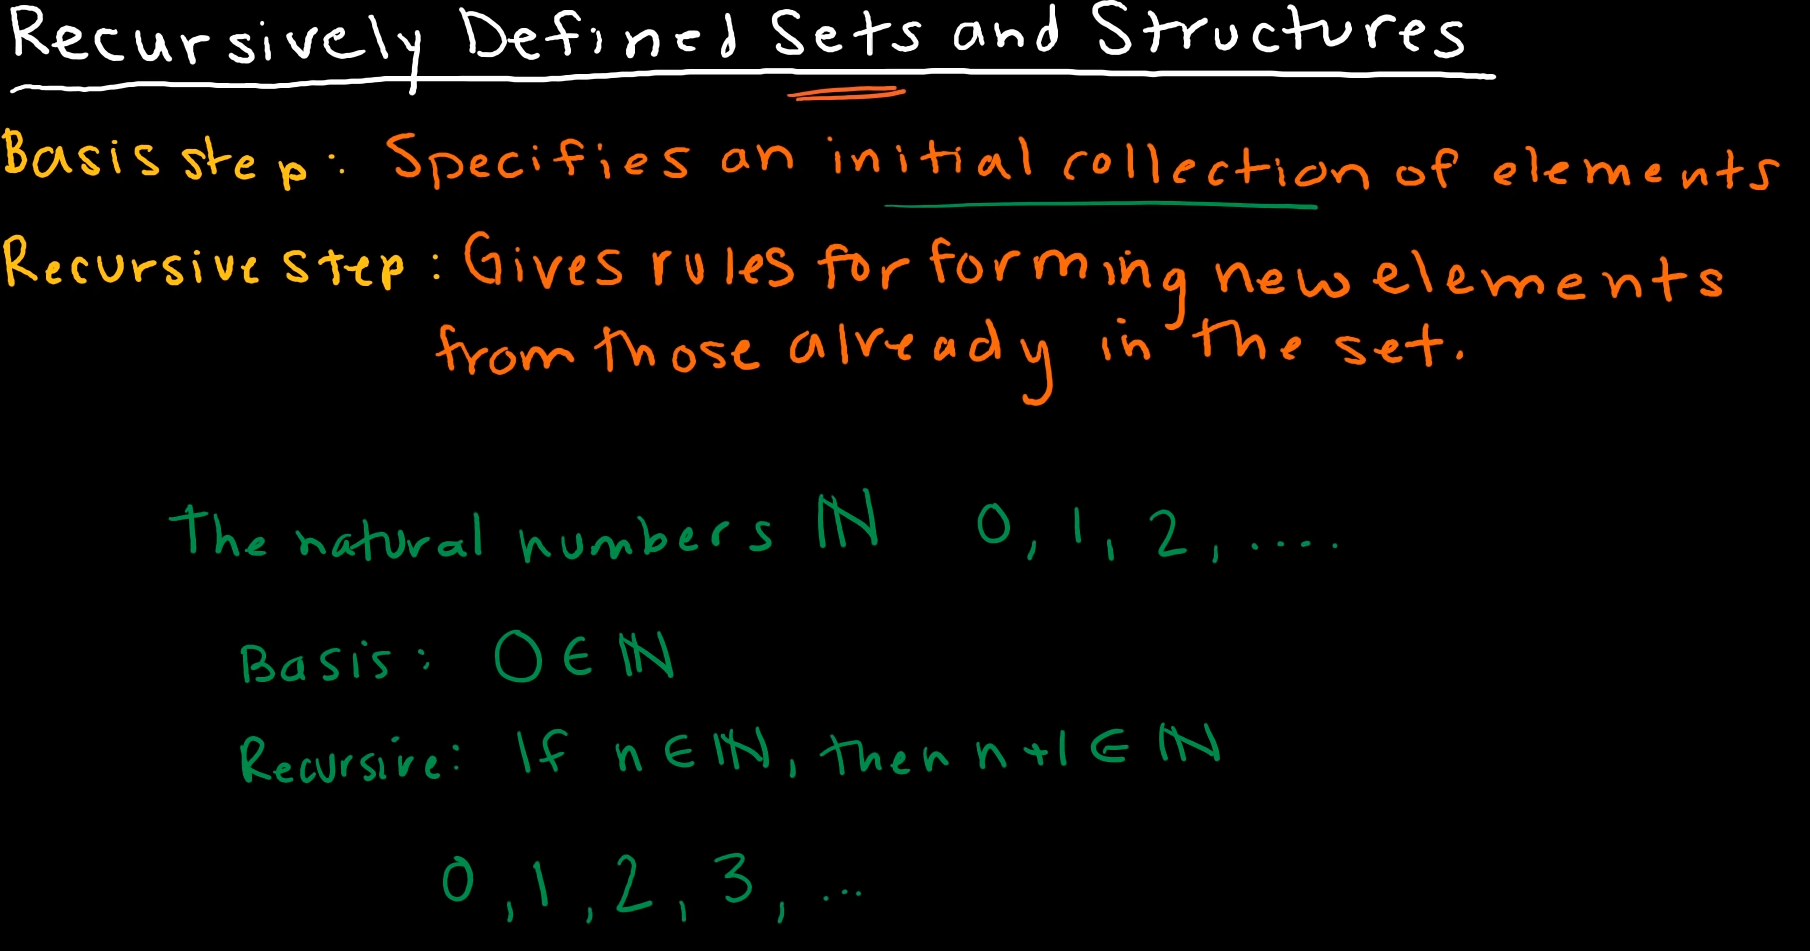 Recursively Defined Sets and Structures
Basis step: Specifies an initial collection of elements
Recursive step: Gives rules for forming new elements
from those already in the set.
The natural numbers ℕ 0, 1, 2, ....
Basis: 0 ∈ ℕ
Recursive: If n ∈ ℕ, then n+1 ∈ ℕ
0, 1, 2, 3, ...